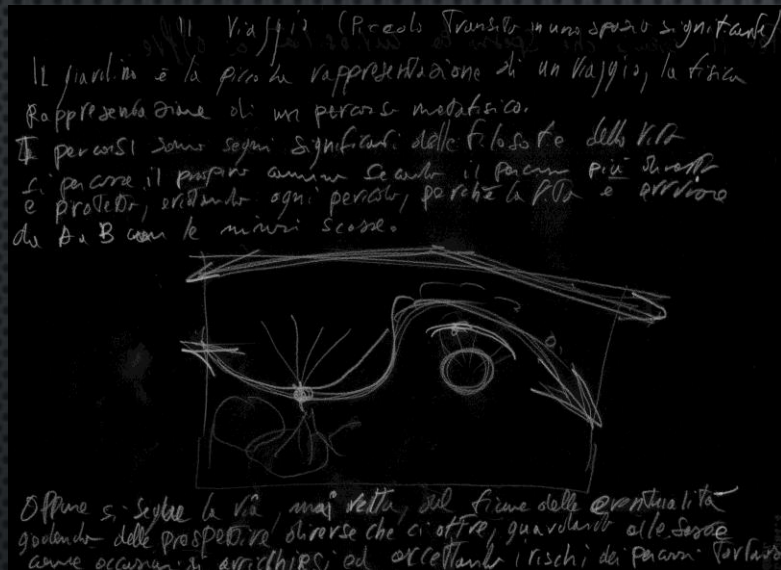 Il Viaggio (Piccolo Transito in uno spazio significante)
Il giardino è la piccola rappresentazione di un viaggio, la fisica
Rappresentazione di un percorso metafisico.
I percorsi sono segni significanti delle filosofie della Vita
si percorre il proprio cammino secondo il percorso più diretto
e protetto, evitando ogni pericolo, perché la Vita è arrivare
da A a B con le minori scosse.
Oppure si sceglie la via mai retta, sul fiume delle eventualità
godendo delle prospettive diverse che ci offre, guardando alle
come occasioni di arricchirsi ed accettando i rischi dei percorsi